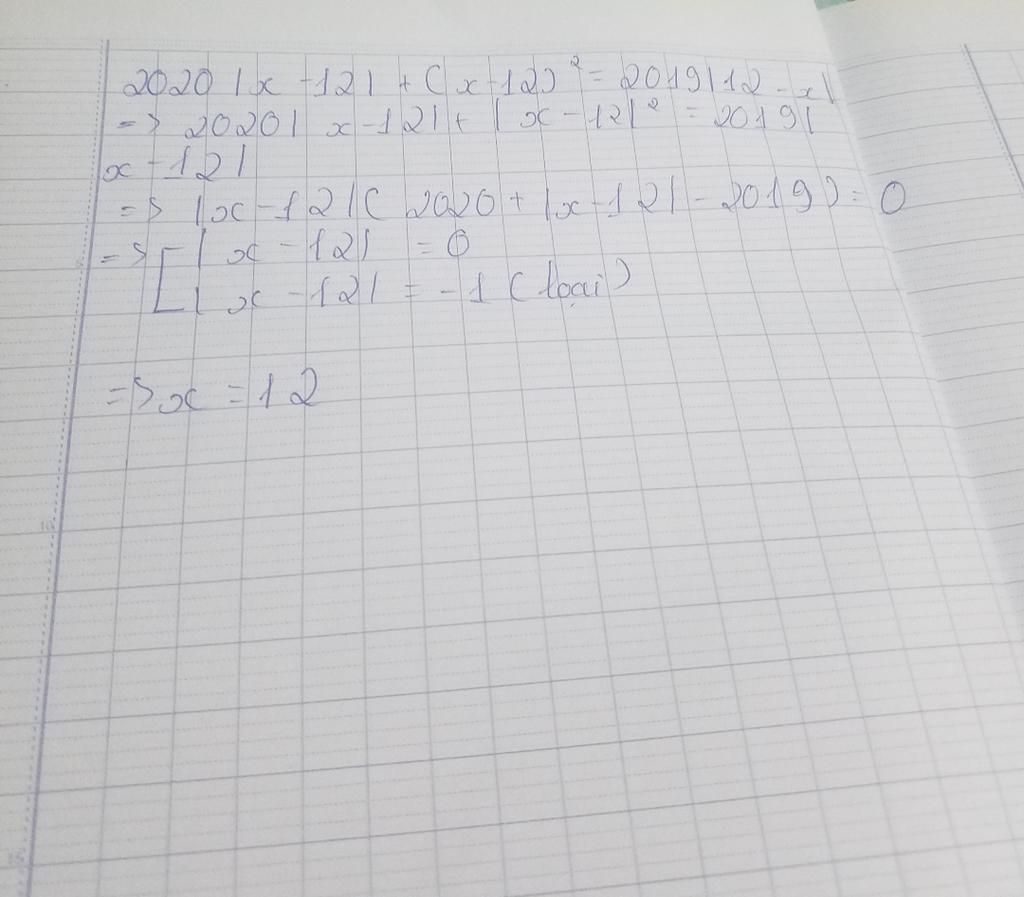 2020|x-12|+(x-12)²=2019|12-x|
=> 2020|x-12|+|x-12|²=2019|
x-12|
=> |x-12|(2020+|x-12|-2019)=0
=> [|x-12|=0
|x-12|=-1 (loại)
=> x=12